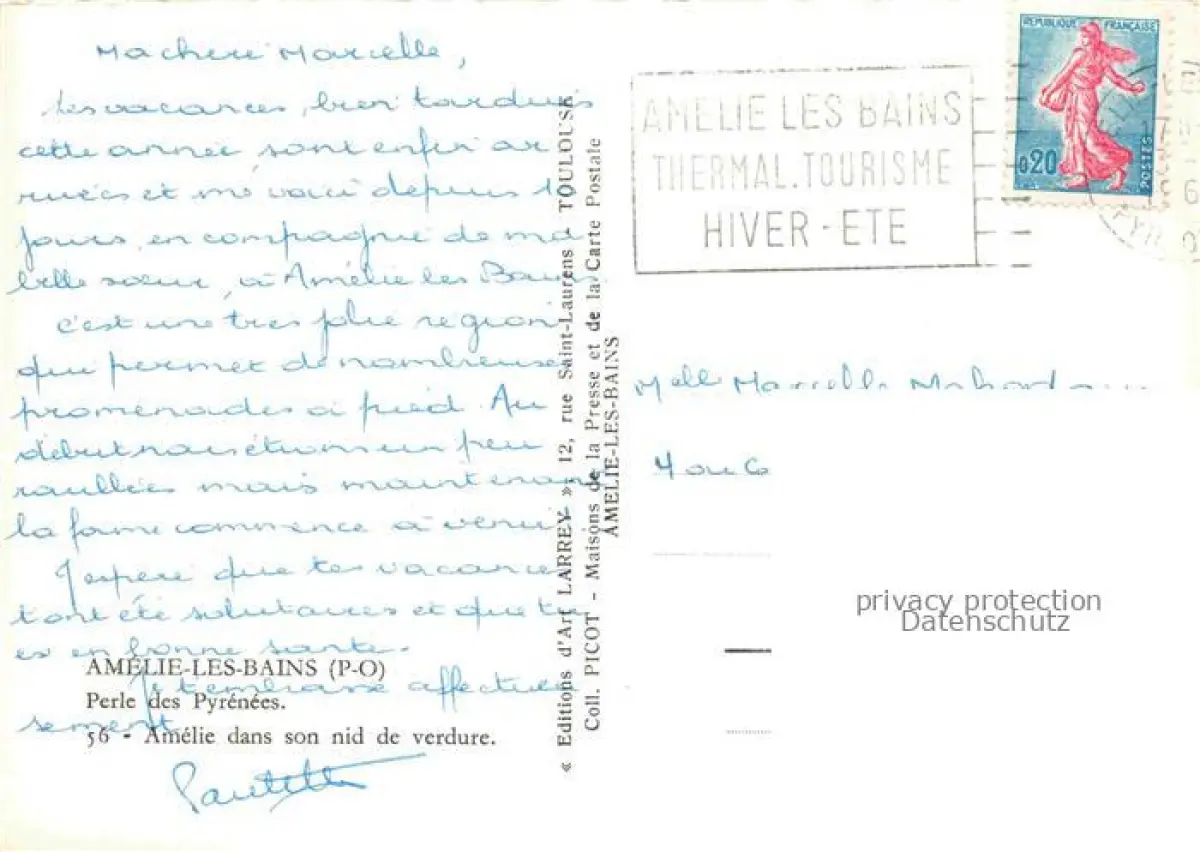 Ma chere Marcelle,
Les vacances, bien tardives
cette année sont enfin ar
rivées et me voici depuis 10
jours, en compagnie de ma
belle sœur, à Amélie les Bains.
C'est une tres jolie region
qui permet de nombreuses
promenades à pied. Au
début nous étions un peu
rouillées mais maintenant
la forme commence à venir
J'espere que tes vacances
t'ont été salutaires et que tu
es en bonne santé.
Je t'embrasse affectueu
sement
Paulette
AMÉLIE-LES-BAINS (P-O)
Perle des Pyrénées.
56 - Amélie dans son nid de verdure.
« Editions d'Art LARREY », 12, rue Saint-Laurens - TOULOUSE
Coll. PICOT - Maisons de la Presse et de la Carte Postale
AMELIE-LES-BAINS
AMELIE LES BAINS
THERMAL.TOURISME
HIVER-ETE
REPUBLIQUE FRANÇAISE
0,20
POSTES
Melle Marcelle
privacy protection
Datenschutz